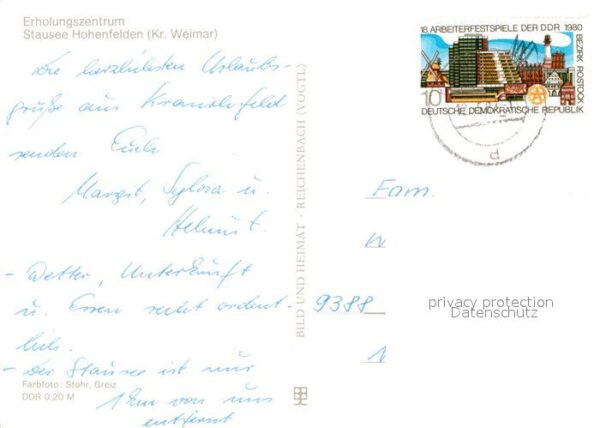 Erholungszentrum
Stausee Hohenfelden (Kr. Weimar)
Die herzlichsten Urlaubs-
grüße aus Kranichfeld
senden Euch
Margit, Sylvia u.
Helmut.
- Wetter, Unterkunft
u. Essen recht ordent-
lich.
- Der Stausee ist nur
1 km von uns
entfernt
Farbfoto: Stöhr, Greiz
DDR 0,20 M
BILD UND HEIMAT · REICHENBACH (VOGTL)
18. ARBEITERFESTSPIELE DER DDR 1980
BEZIRK ROSTOCK
10
DEUTSCHE DEMOKRATISCHE REPUBLIK
d
Fam.
W
9388
1
privacy protection
Datenschutz